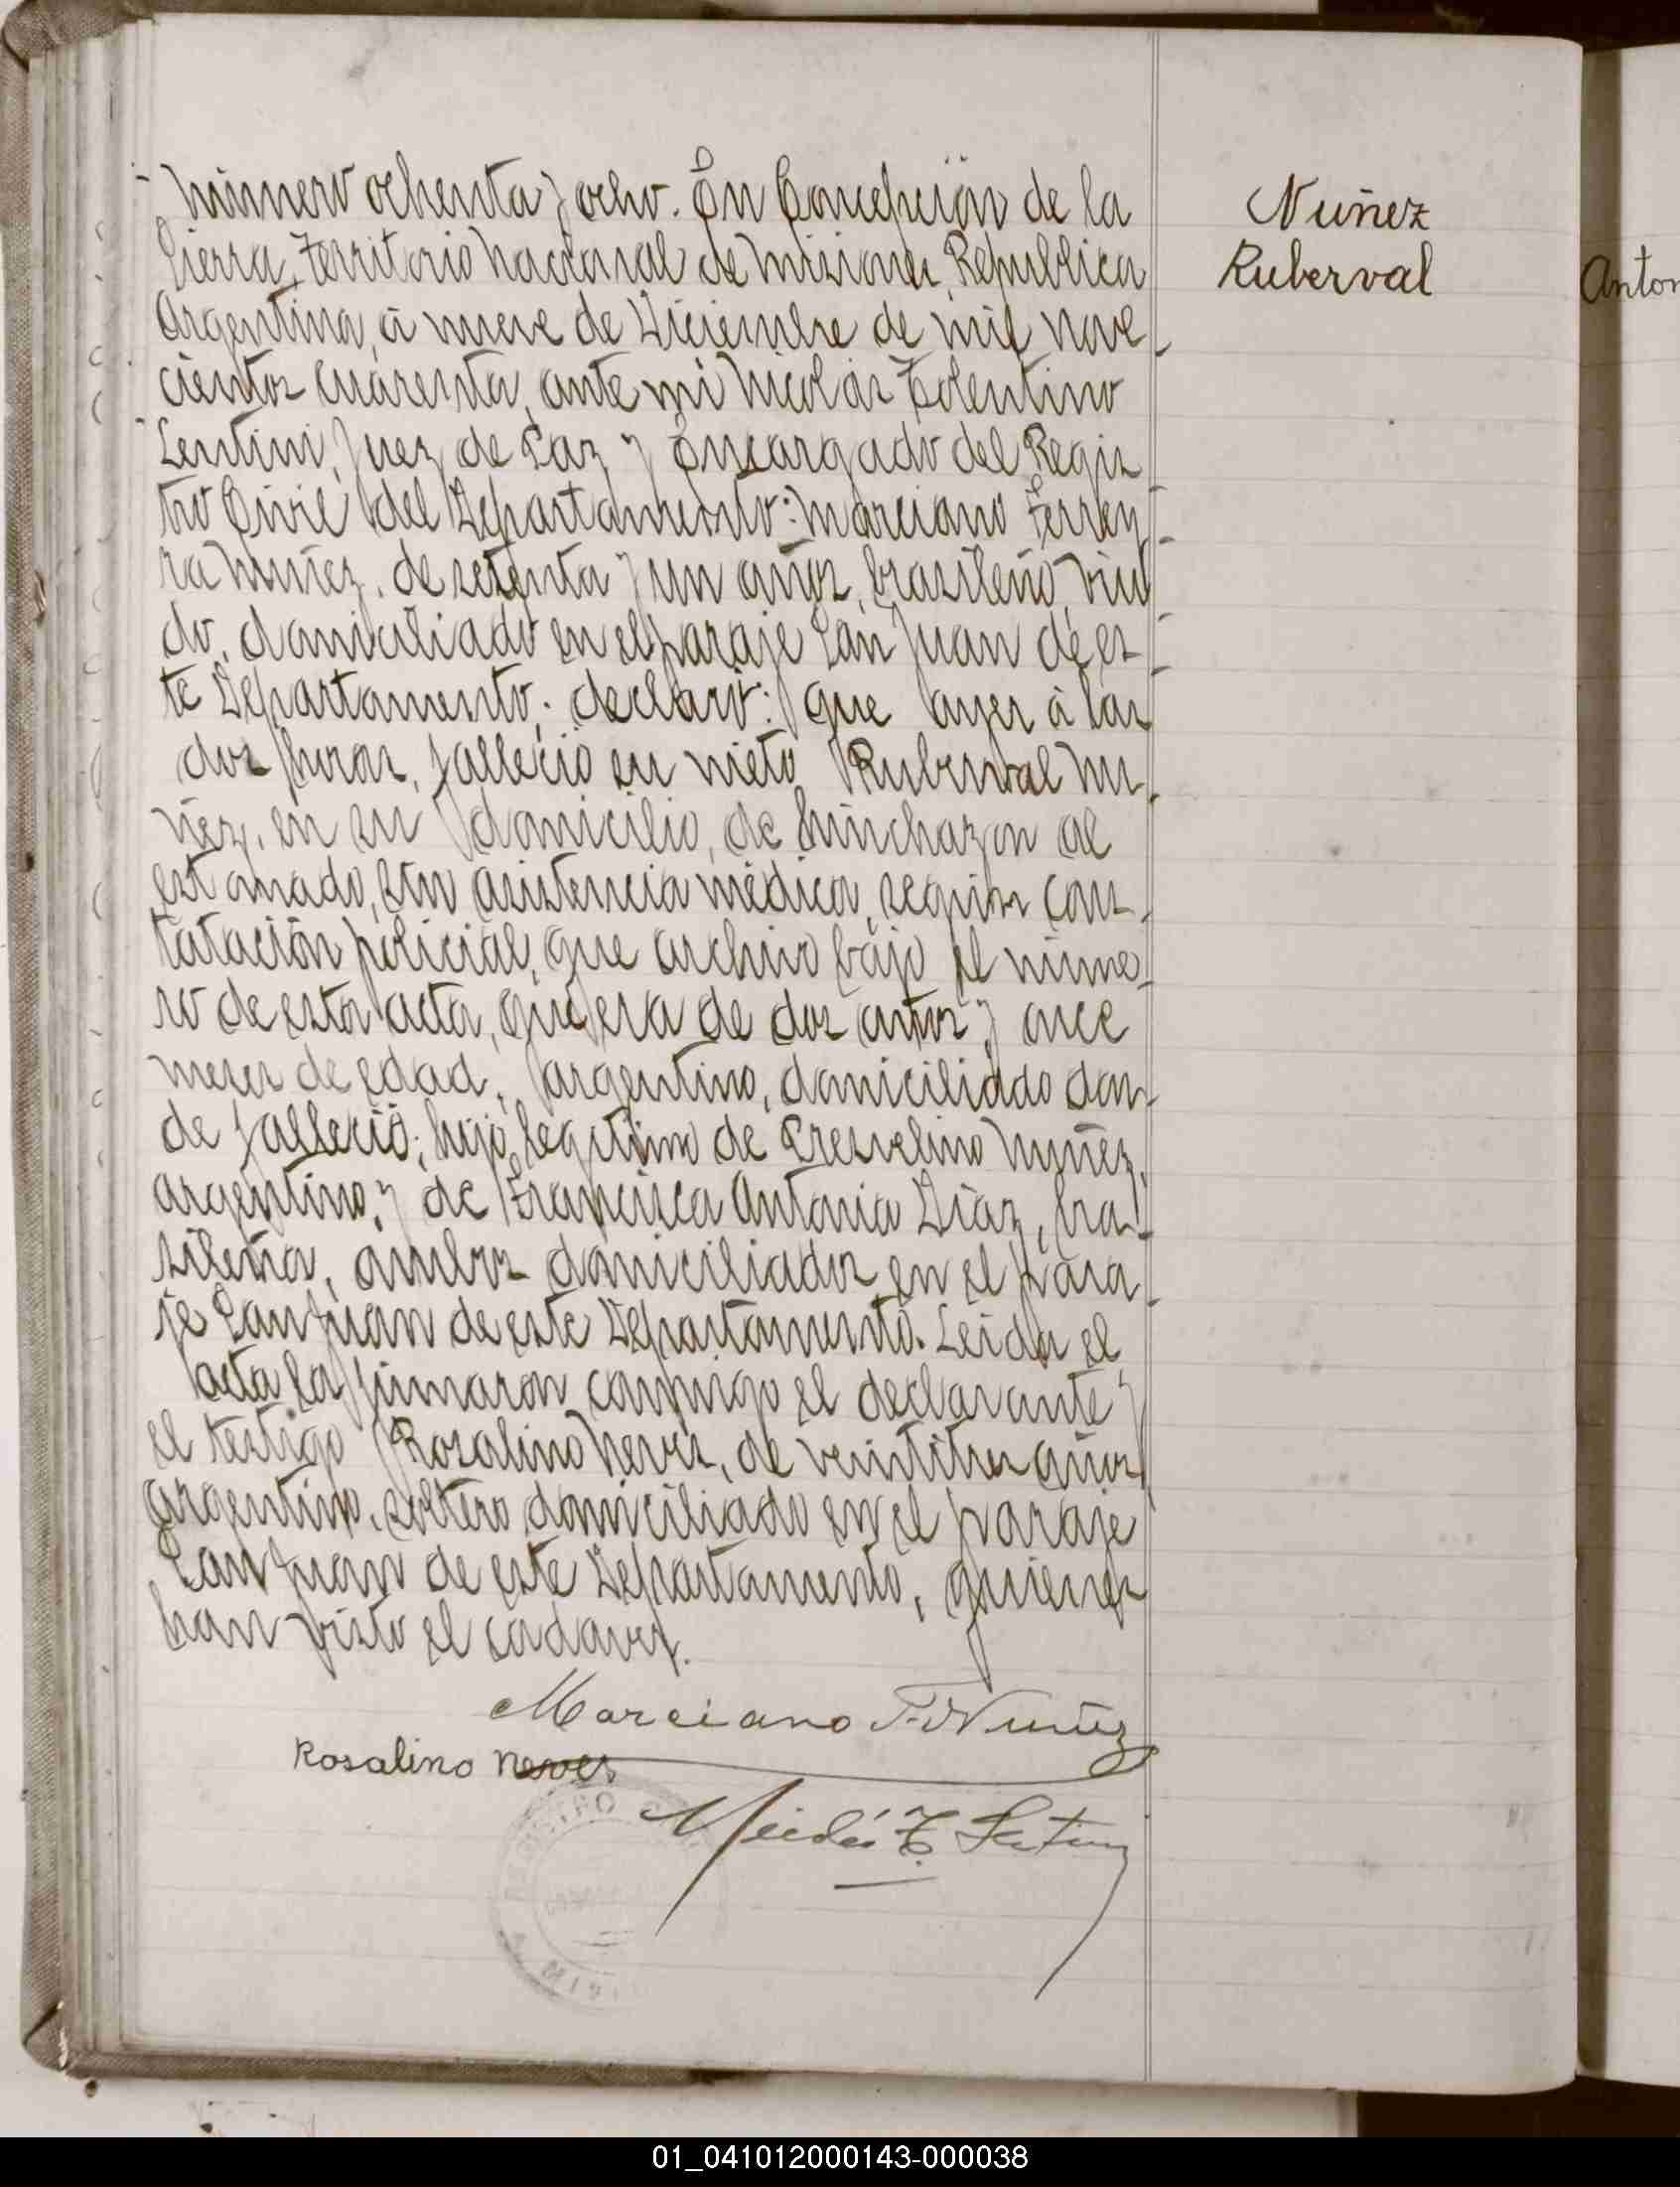 Número ochenta y ocho. En Concepción de la
Sierra, Territorio Nacional de Misiones, Republica
Argentina, á nueve de Diciembre de mil nove
cientos cuarenta, ante mi Nicolás Tolentino
Lentini, Juez de Paz y Encargado del Regis
tro Civil del Departamento: Marciano Ferrey
ra Nuñez, de setenta y un años, brasileño, viu
do, domiciliado en el paraje San Juan de es-
te Departamento; declaró: que ayer á las
dos horas, falleció su nieto Ruberval Nu-
ñez, en su domicilio, de hinchazon al
estomado, sin asistencia médica, según cons-
tatación policial, que archivo bajo el núme-
ro de esta acta, que era de dos años y once
meses de edad, argentino, domiciliado don-
de falleció; hijo legitimo de Nuñez,
argentino, y de Francisca Antonia Díaz, bra-
sileña, ambos domiciliados en el para-
je San Juan de este Departamento. Leída el
acta la firmaron conmigo el declarante y
el testigo Rosalino Neves, de veintitres años
argentino, soltero domiciliado en el paraje
San Juan de este Departamento, quienes
han visto el cadaver.
Marciano F. Nuñez
Rosalino Neves
Nicolás T. Lentini
Nuñez
Ruberval
Anton
01_041012000143-000038